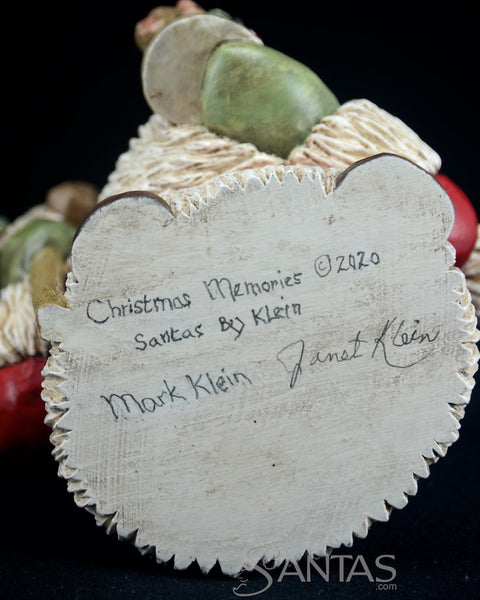 Christmas Memories ©2020
Santas By Klein
Mark Klein Janet Klein
SANTAS.com